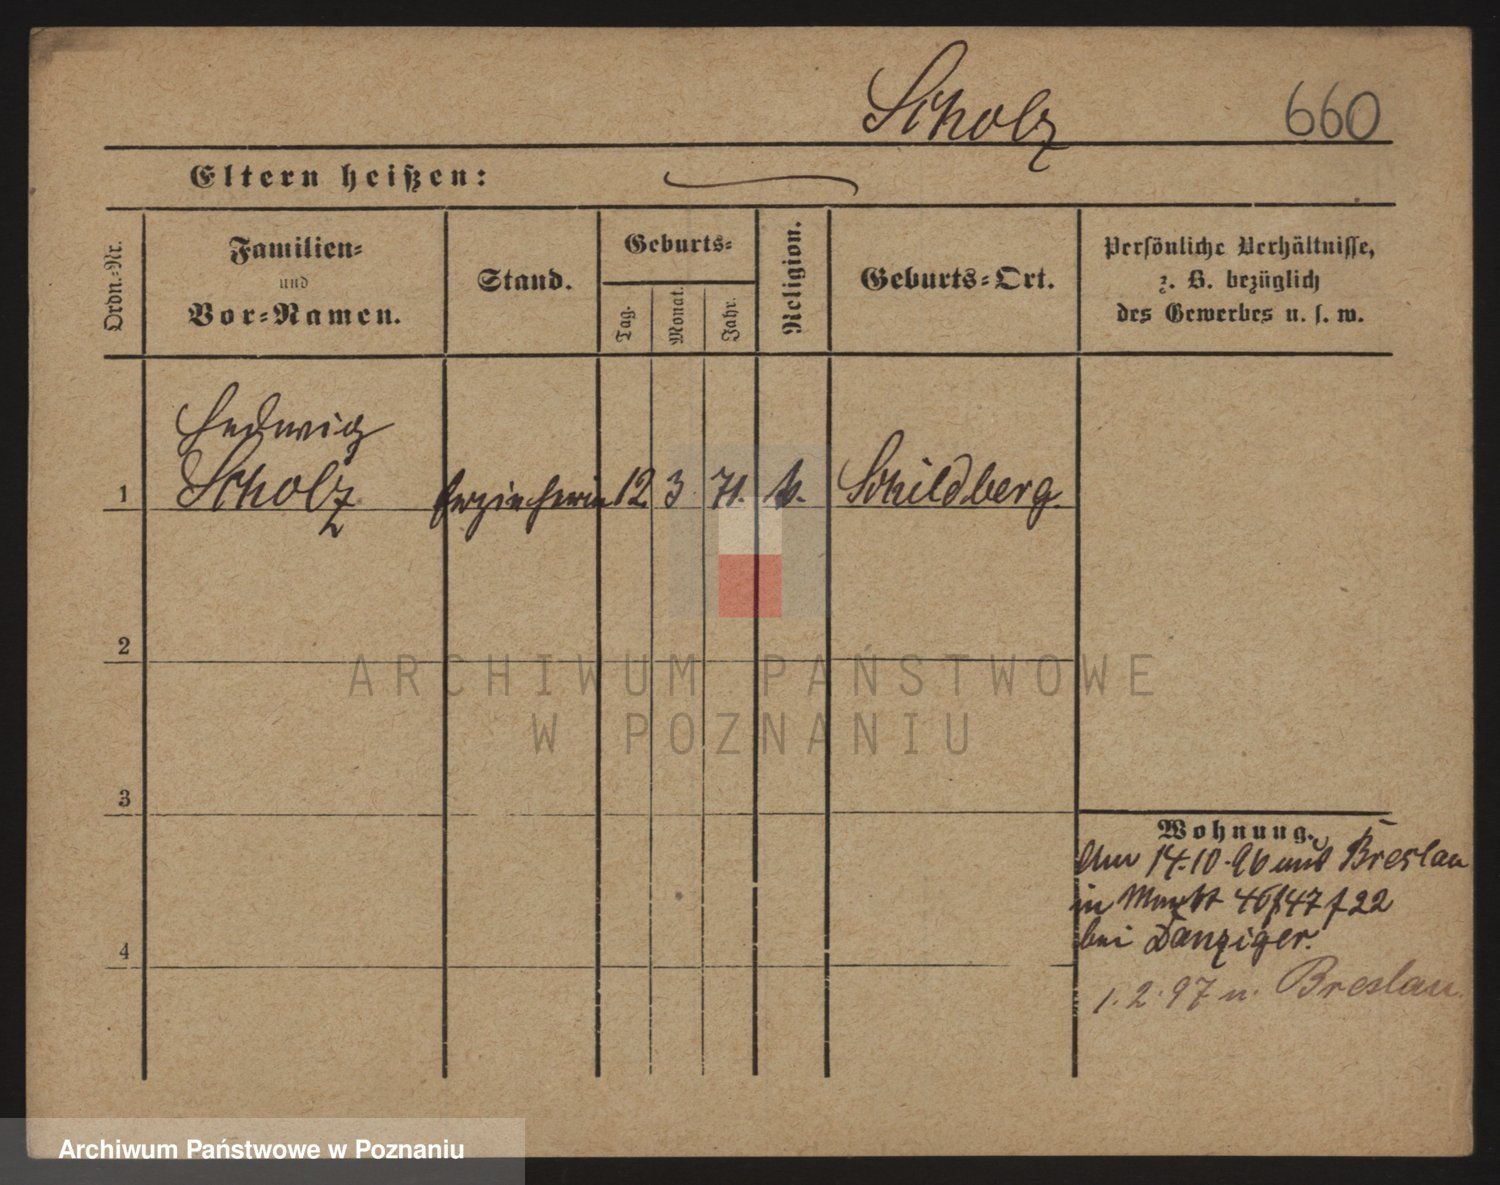 Scholz 660
Eltern heißen:
Ordn.=Nr.
Familien=
und
Vor=Namen.
Stand.
Geburts=
Tag.
Monat.
Jahr.
Religion.
Geburts=Ort.
Persönliche Verhältnisse,
z. B. bezüglich
des Gewerbes u. s. w.
Hedwig
1 Scholz Erzieherin 12 3. 71. k. Schildberg.
2
3
4
ARCHIWUM PAŃSTWOWE
W POZNANIU
Wohnung.
Am 14.10.96 aus Breslau
in Markt 46/47 f 22
bei Danziger.
1.2.97 n. Breslau.
Archiwum Państwowe w Poznaniu